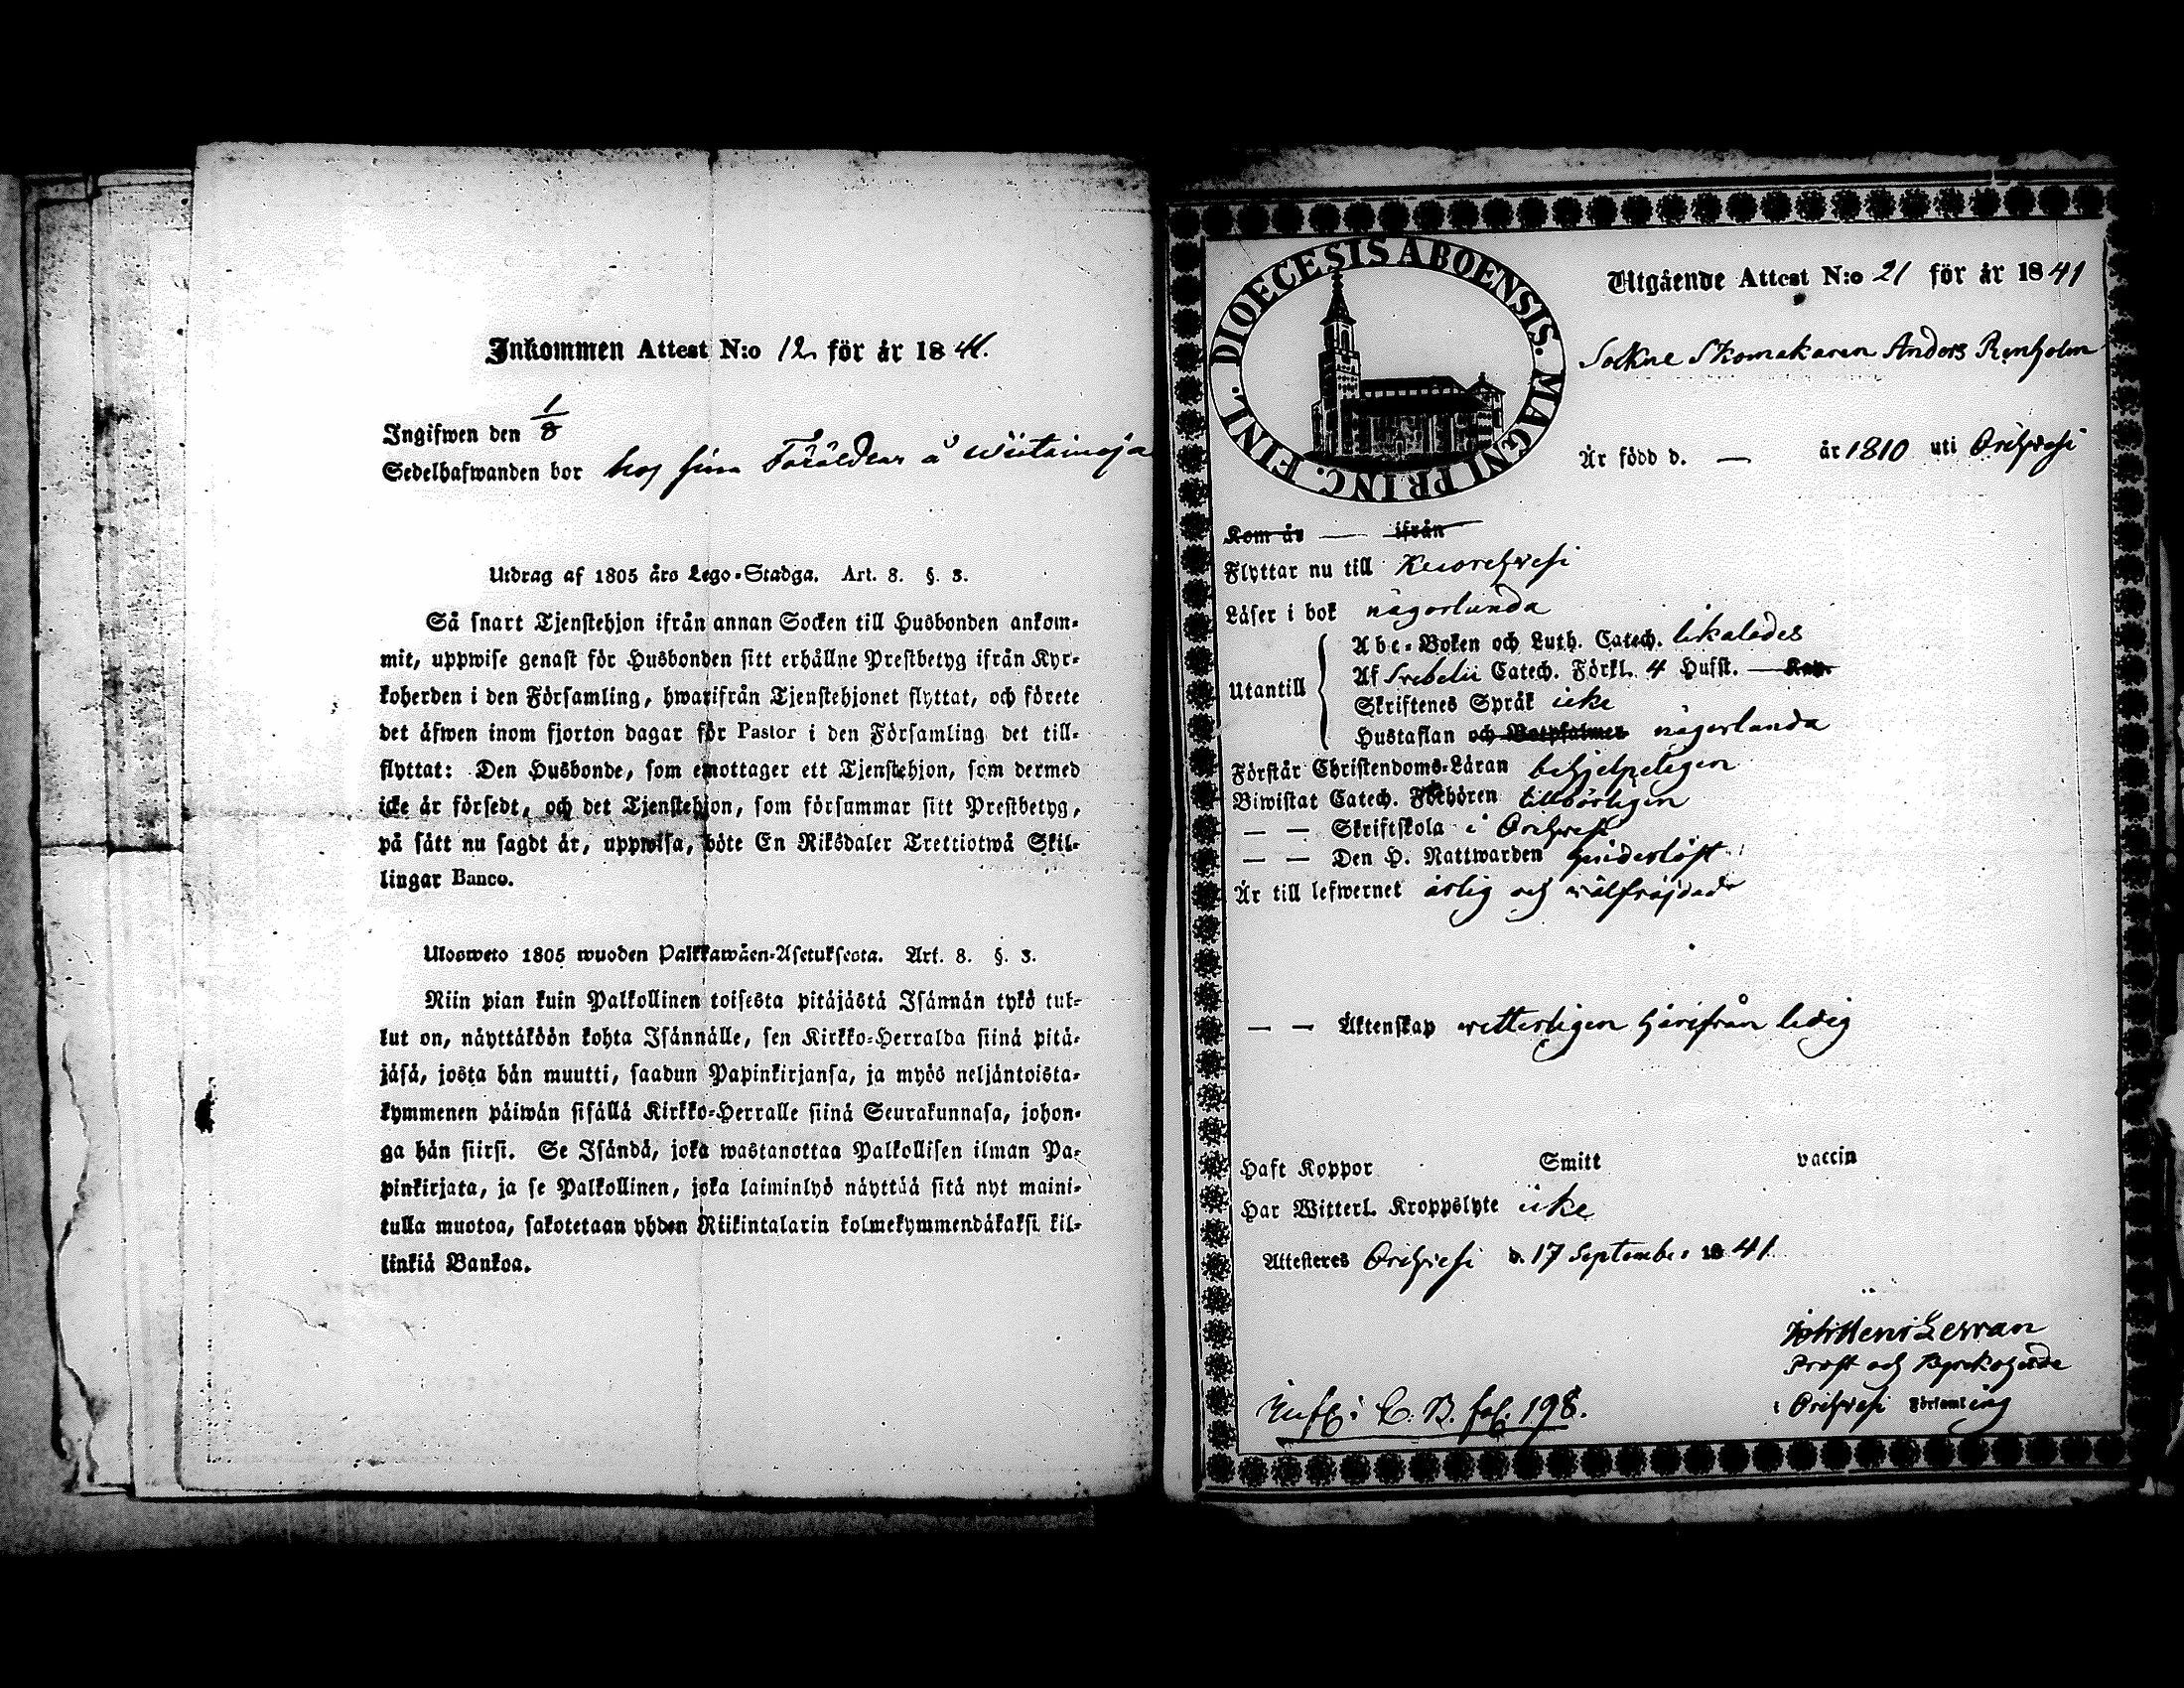 Inkommen Attest N:o 12 för år 1841.
Ingifwen den 1/8
Sedelhafwanden bor hos sina Föräldrar å
Utdrag af 1805 års Lego-Stadga. Art. 8. §. 3.
Så snart Tjenstehjon ifrån annan Socken till Husbonden ankom-
mit, uppwise genast för Husbonden sitt erhållne Prestbetyg ifrån Kyr-
koherden i den Församling, hwarifrån Tjenstehjonet flyttat, och förete
det äfwen inom fjorton dagar för Pastor i den Församling det till-
flyttat: Den Husbonde, som emottager ett Tjenstehjon, som dermed
icke är försedt, och det Tjenstehjon, som försummar sitt Prestbetyg,
på sätt nu sagdt är, uppwisa, böte En Riksdaler Trettiotwå Skil-
lingar Banco.
Ulosweto 1805 wuoden Palkkawäen-Asetuksesta. Art. 8. §. 3.
Niin pian kuin Palkollinen toisesta pitäjästä Isännän tykö tul-
lut on, näyttäköön kohta Isännälle, sen Kirkko-Herralda siinä pitä-
jäsä, josta hän muutti, saadun Papinkirjansa, ja myös neljäntoista-
kymmenen päiwän sisällä Kirkko-Herralle siinä Seurakunnasa, johon-
ga hän siirsi. Se Isändä, joka wastanottaa Palkollisen ilman Pa-
pinkirjata, ja se Palkollinen, joka laiminlyö näyttää sitä nyt maini-
tulla muotoa, sakotetaan yhden Riikintalarin kolmekymmendäkaksi kil-
linkiä Bankoa.
DIOECESIS ABOENSIS. MAGNI PRINC. FINL.
Utgående Attest N:o 21 för år 1841
Sockne Skomakaren Anders Renholm
Är född d. — år 1810 uti Orihvesi
Kom år — ifrån
Flyttar nu till Keuruhvesi
Läser i bok någorlunda
Abc-Boken och Luth. Catech. likaledes
Utantill
Af Svebelii Catech. Förkl. 4 Hufst. — Kap.
Skriftenes Språk icke
Hustaflan och Botpsalmer någorlunda
Förstår Christendoms-Läran behjelpeligen
Biwistat Catech. Förhören tillbörligen
— — Skriftskola i Orihvesi
— — Den H. Nattwarden hinderlöst
Är till lefwernet ärlig och wälfrejdad
— — Äktenskap vetterligen härifrån ledig
Haft Koppor Smitt vaccin
Har Witterl. Kroppslyte icke
Attesteres Orihvesi d. 17 September 1841
Prost och Kyrkoherde
i Orihvesi Församling
C. B. fol. 198.